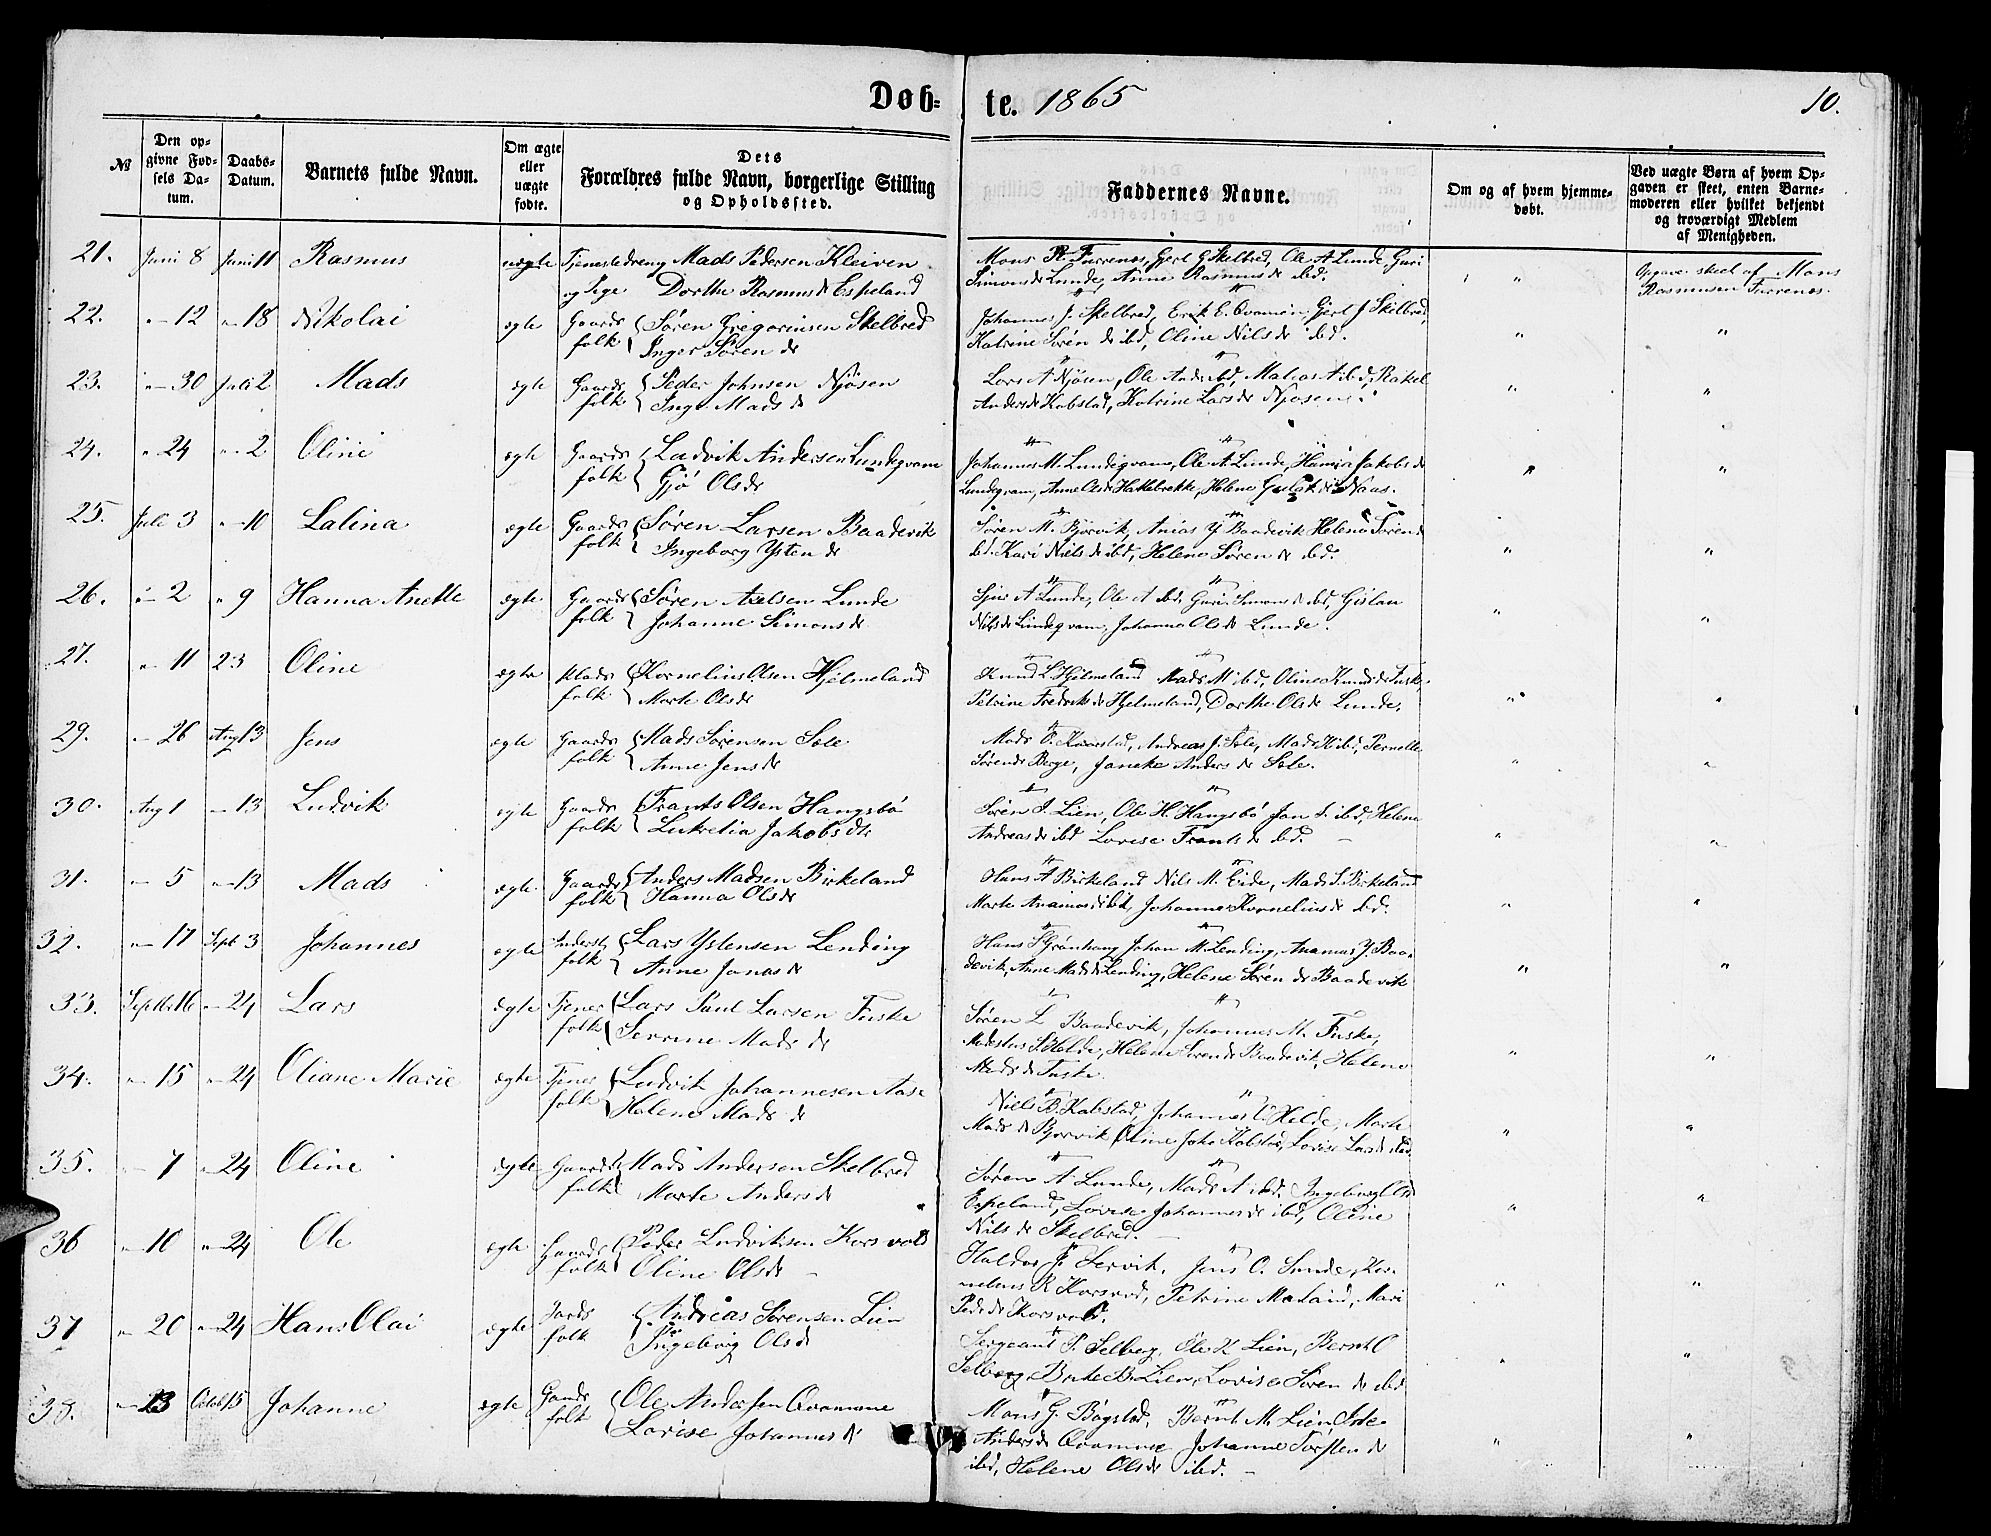 Døb-te. 1865
10.
№
Den opgivne Fødsels Datum.
Daabs-Datum.
Barnets fulde Navn.
Om ægte eller uægte fødte.
Dets Forældres fulde Navn, borgerlige Stilling og Opholdssted.
Faddernes Navne.
Om og af hvem hjemmedøbt.
Ved uægte Børn af hvem Opgaven er skeet, enten Barnemoderen eller hvilket bekjendt og troværdigt Medlem af Menigheden.
21. Juni 8 Juni 11 Rasmus uægte Tjenestedreng Mads Pedersen Kleiven
og Pige Dorthe Rasmusdr Espeland
Mons R Furrenes, Gjert G Skelbred, Ole A Lunde, Guri
Simonsdr Lunde, Anne Rasmusdr ibd.
Opgave skeet af Mons
Rasmussen Furrenes.
22. " 12 " 18 Nikolai egte Gaardfolk Søren Gregoriusen Skelbred
Inger Sørendr
Johannes J. Skelbred, Erik E. Qvamen, Gjert J Skelbred,
Katrine Sørendr ibd, Oline Nilsdr ibd.
23. " 30 Juli 2 Mads egte Gaardfolk Peder Johnsen Njøsen
Inge Madsdr
Lars A Njøsen, Ole And ibd, Matias A ibd, Rakel
Andersdr Kobstad, Katrine Larsdr Njøsen
24. " 24 " 2 Oline egte Gaardfolk Ludvik Andersen Lundeqvam
Gjø Olsdr
Johannes M. Lundeqvam, Ole A Lunde, Jakobsdr
Lundeqvam, Anne Olsdr Hatlebrekke, Helene
25. Juli 3 " 10 Lalina egte Gaardfolk Søren Larsen Baadevik
Ingeborg Ystendr
Søren M. Bjørvik, Anias Y Baadevik Helene Sørendr
ibd. Kari Nilsdr ibd, Helene Sørendr ibd.
26. " 2 " 9 Hanna Anette egte Gaardfolk Søren Axelsen Lunde
Johanne Simonsdr
Sjur A Lunde, Ole A ibd, Guri Simonsdr ibd, Gislau
Nilsdr Lundeqvam, Johanne Olsdr Lunde.
27. " 11 23 Oline egte Pladsfolk Kornelius Olsen Hjelmeland
Marte Olsdr
Knud L Hjelmeland Mads M ibd, Oline Knudsdr Fuske,
Petrine Fredriksdr Hjelmeland, Dorthe Olsdr Lunde.
29. " 26 Aug 13 Jens egte Gaardfolk Mads Sørensen Sæle
Anne Jensdr
Mads O. Kvarstad, Andreas J. Sæle, Mads K ibd, Pernelle
Sørendr Berge, Janeke Andersdr Sæle.
30. Aug 1 " 13 Ludvik egte Gaardfolk Frants Olsen Hangsbø
Lukretia Jakobsdtr
Søren S. Lien, Ole H. Hangsbø Jon S. ibd, Helene
Andreasdr ibd Lovise Frantsdr ibd.
31. " 5 " 13 Mads egte Gaardfolk Anders Madsen Birkeland
Hanna Olsdr
Hans A Birkeland Nils M. Eide, Mads S. Birkeland
Marte Anamasdr ibd, Johanne Korneliusdr ibd.
32. " 17 Sept 3 Johannes egte Inderstfolk Lars Ystensen Lending
Anne Jonasdr
Hans S Grønhaug Johan M. Lending, Ananias Y. Baadevik,
Anne Madsdr Lending, Helene Sørendr Baadevik
33. Septbr 16 " 24 Lars egte Tjenerfolk Lars Paul Larsen Fuske
Serrine Madsdr
Søren L Baadevik, Johannes M. Fuske,
Helde, Helene Sørendr Baadevik, Helene
Madsdr Fuske.
34. " 15 " 24 Oliane Marie egte Tjenerfolk Ludvik Johannesen Aase
Helene Madsdr
Niels B. Kobstad, Johannes L Helde, Marte
Madsdr Bjørvik, Oline Joh. Kobstad, Lovise Larsdr ibd.
35. " 7 " 24 Oline egte Gaardfolk Mads Andersen Skelbred
Marte Andersdr
Søren A Lunde, Mads A ibd. Ingeborg Olsd
Espeland, Lovise Johannesdr ibd, Oline
Nilsdr Skelbred.
36 " 10 " 24 Ole egte Gaardfolk Peder Ludviksen Korsvold
Oline Olsdr
Haldor J. Lervik, Jens O. Sunde, Kornelius
R Korsvold, Petrine M, Mari
Pedrdr Korsvold.
37 " 20 " 24 Hans Olai egte Gardsfolk Andreas Sørensen Lien
Ingeborg Olsd
Sergeant P. Selberg, Ole K Lien, Bernt O
Selberg, Berte B. Lien, Lovise Sørendr ibd
38. " 13 Octob 15 Johanne egte Gaardsfolk Ole Andersen Qvamme
Lovise Johannesdr
Mons G. Bøgstad, Bernt M. Lien,
Andersdr Qvamme Johanne Torstendr
ibd, Helene Olsdr ibd.